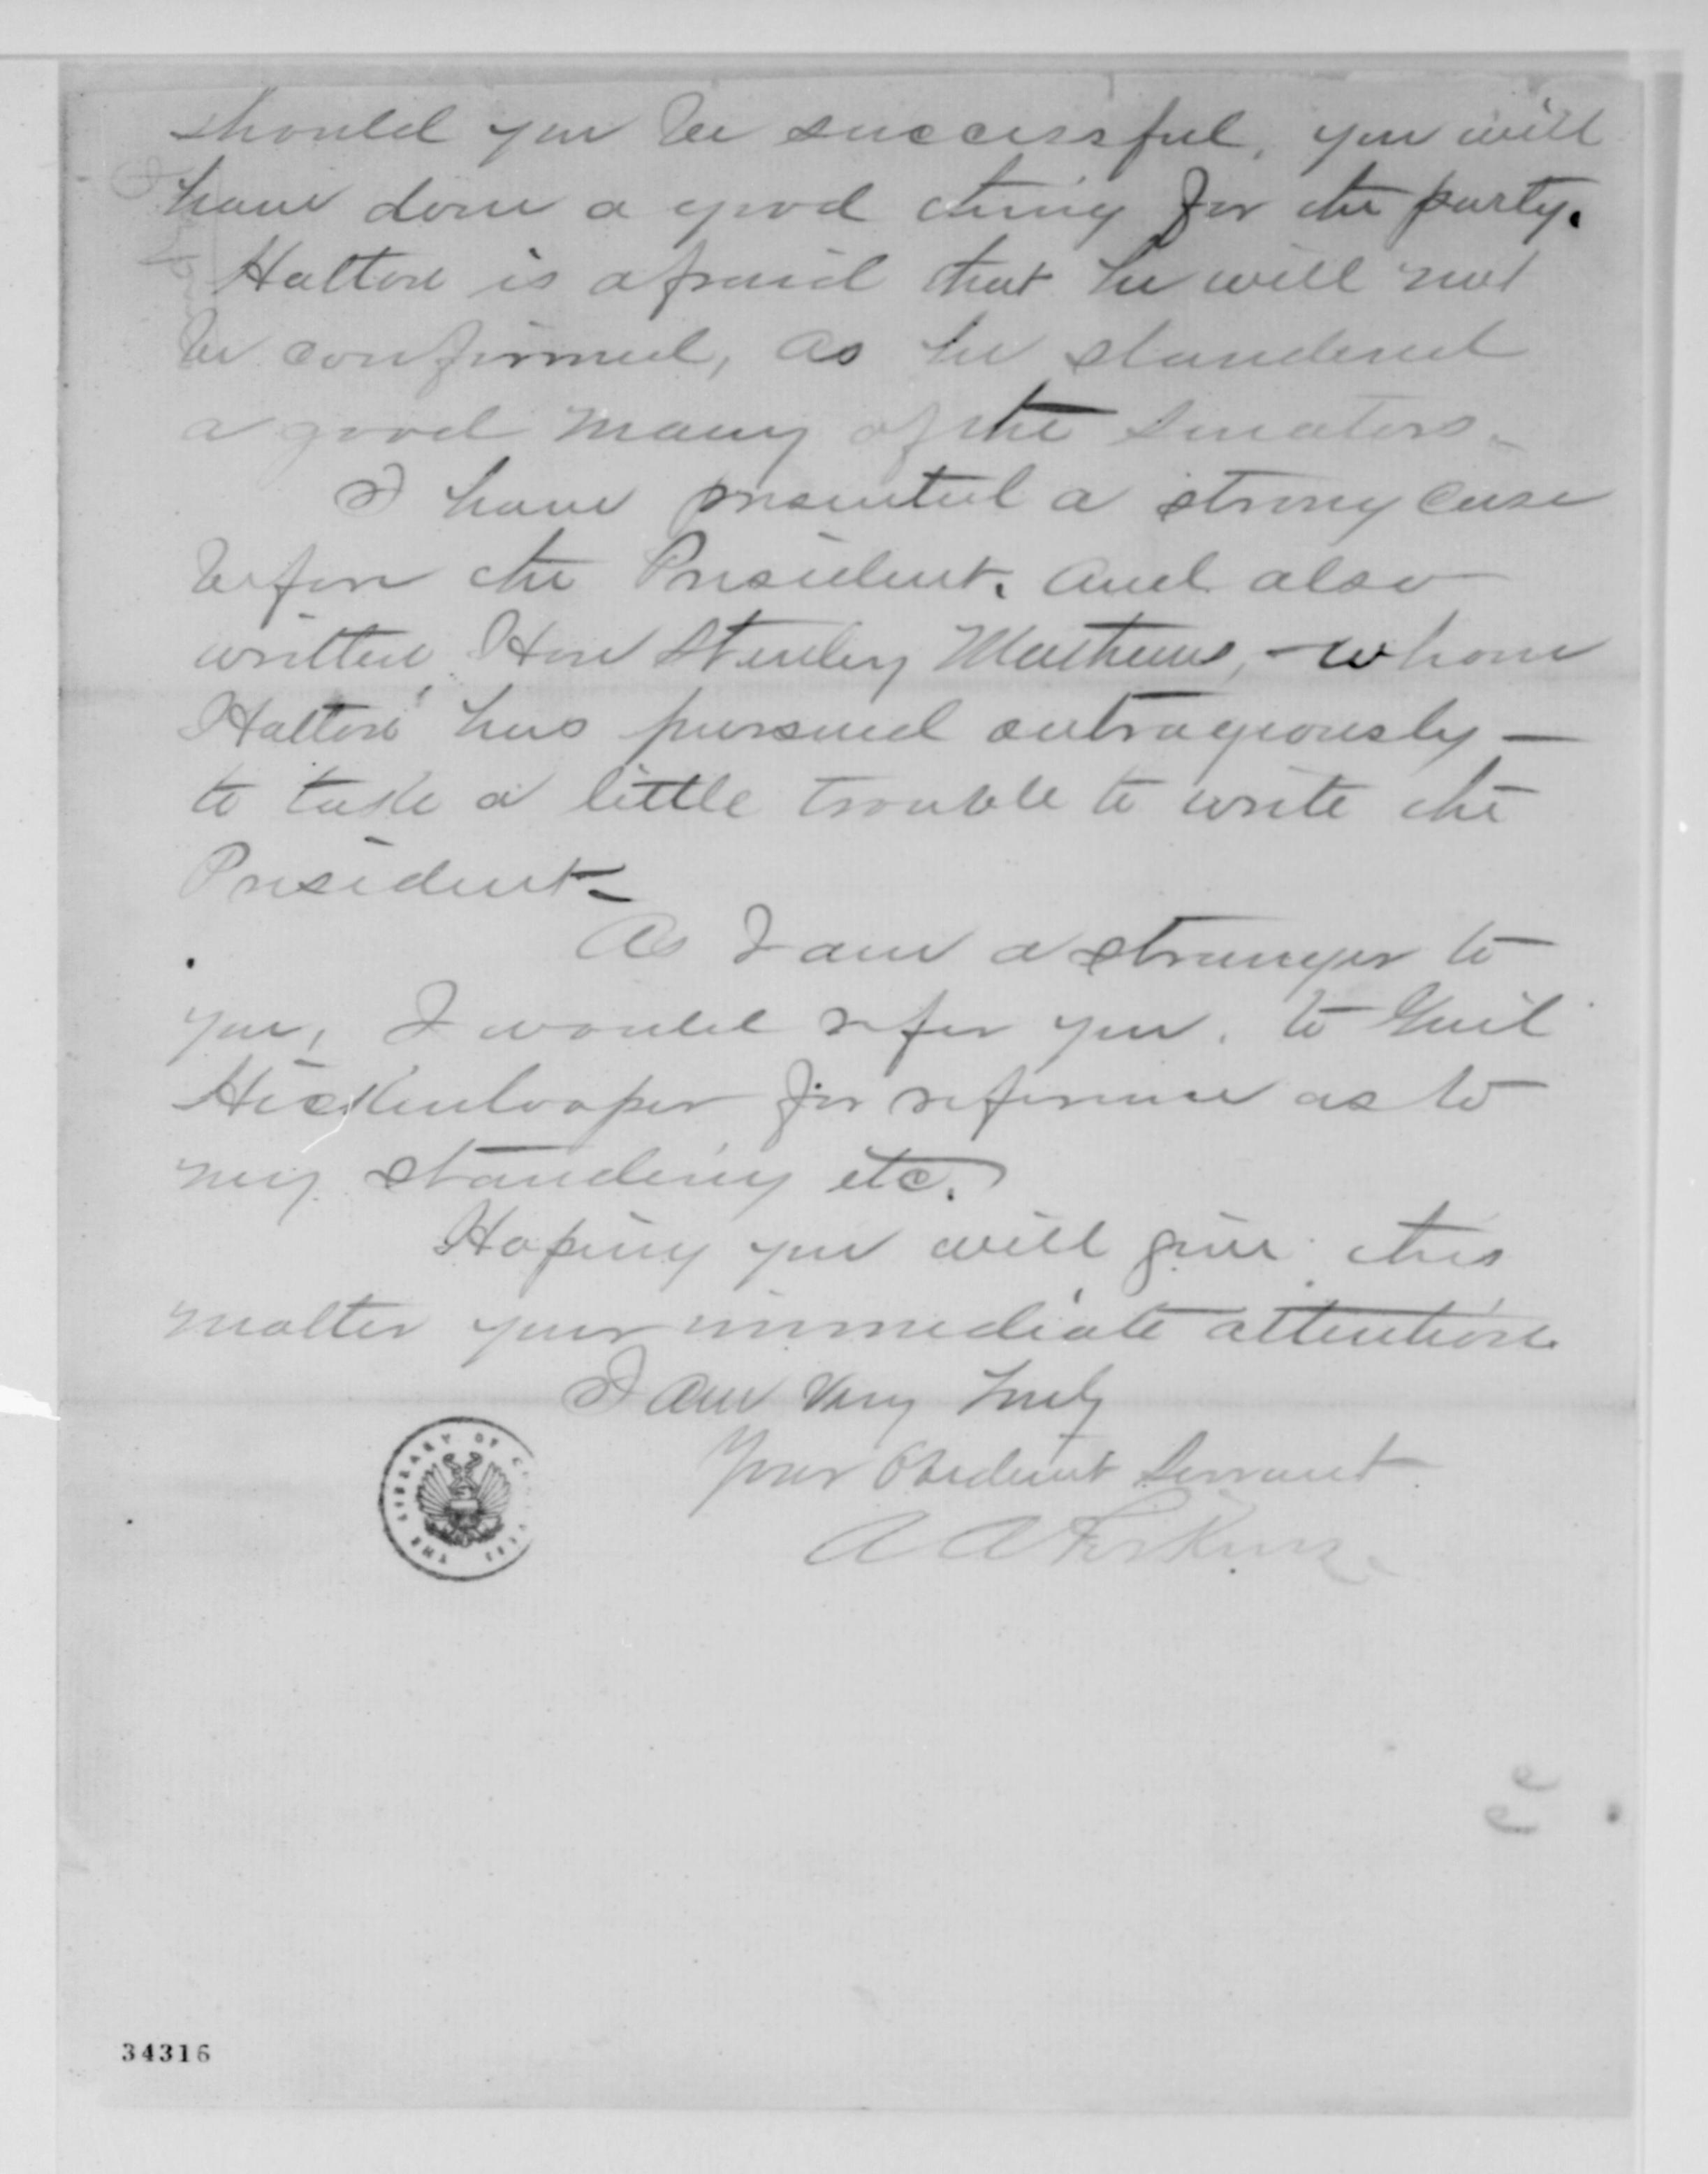 should you be successful, you will
have done a good thing for the party.
Hatton is afraid that he will not
be confirmed, as he slandered
a good many of the Senators.
I have presented a strong case
before the President. and also
written, Hon Stanley Matthews, - whom
Hatton has pursued outrageously —
to take a little trouble to write the
President -
As I am a stranger to
you, I would refer you. to Genl
Hickenlooper for reference as to
my standing etc.
Hoping you will give this
matter your immediate attention.
I am Very Truly
Your Obedient Servant
A A Perkins.
THE LIBRARY OF
34316